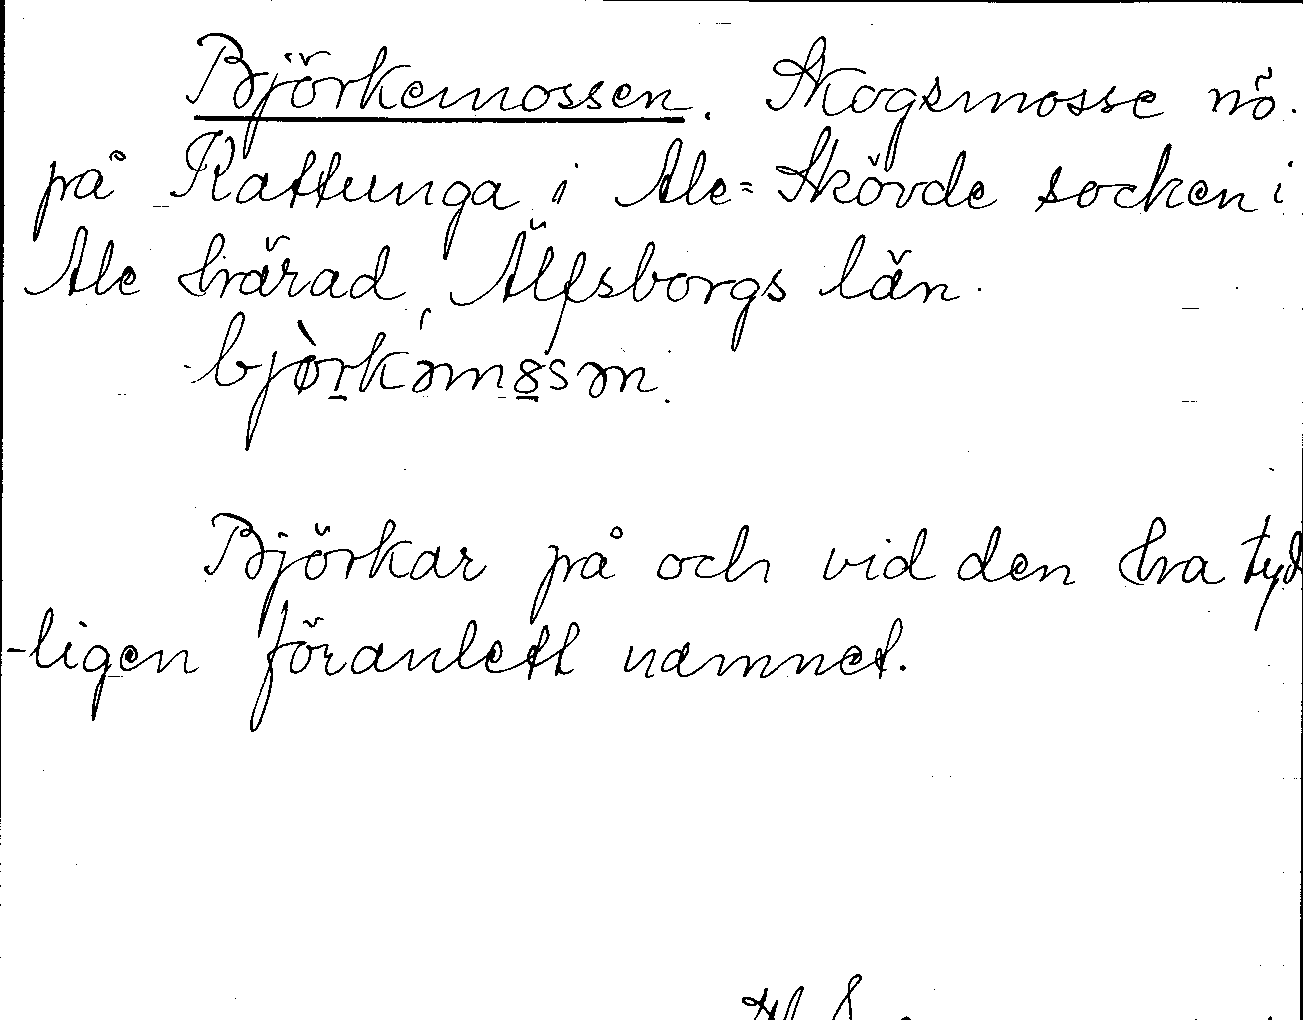 Björkemossen. Skogsmosse nö.
på Rattunga i Ale-Skövde socken i
Ale härad, Älfsborgs län.
bjòrkǝmósǝn.
Björkar på och vid den ha tyd
-ligen föranlett namnet.